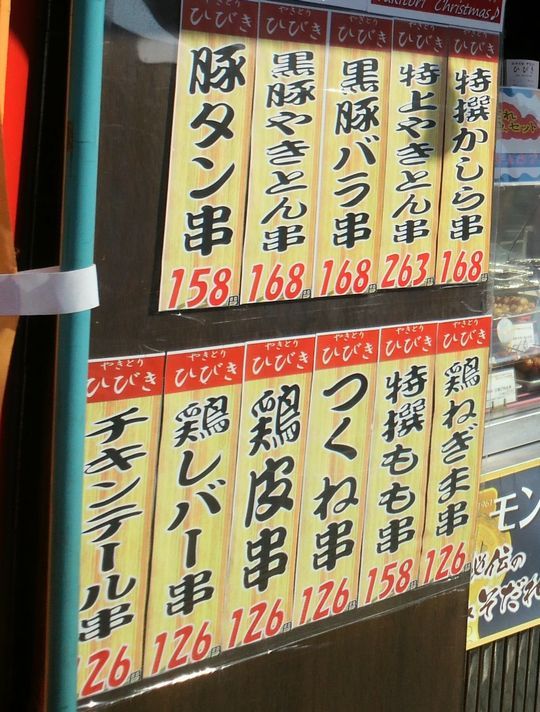 Yakitori Christmas♪
やきとり
ひびき
豚タン串
158
やきとり
ひびき
黒豚やきとん串
168
やきとり
ひびき
黒豚バラ串
168
やきとり
ひびき
特上やきとん串
263
やきとり
ひびき
特撰かしら串
168
ひびき
チキンテール串
126
やきとり
ひびき
鶏レバー串
126
やきとり
ひびき
鶏皮串
126
やきとり
ひびき
つくね串
126
やきとり
ひびき
特撰もも串
158
やきとり
ひびき
鶏ねぎま串
126
ひびき
セット
1961
モン
伝の
そだれ